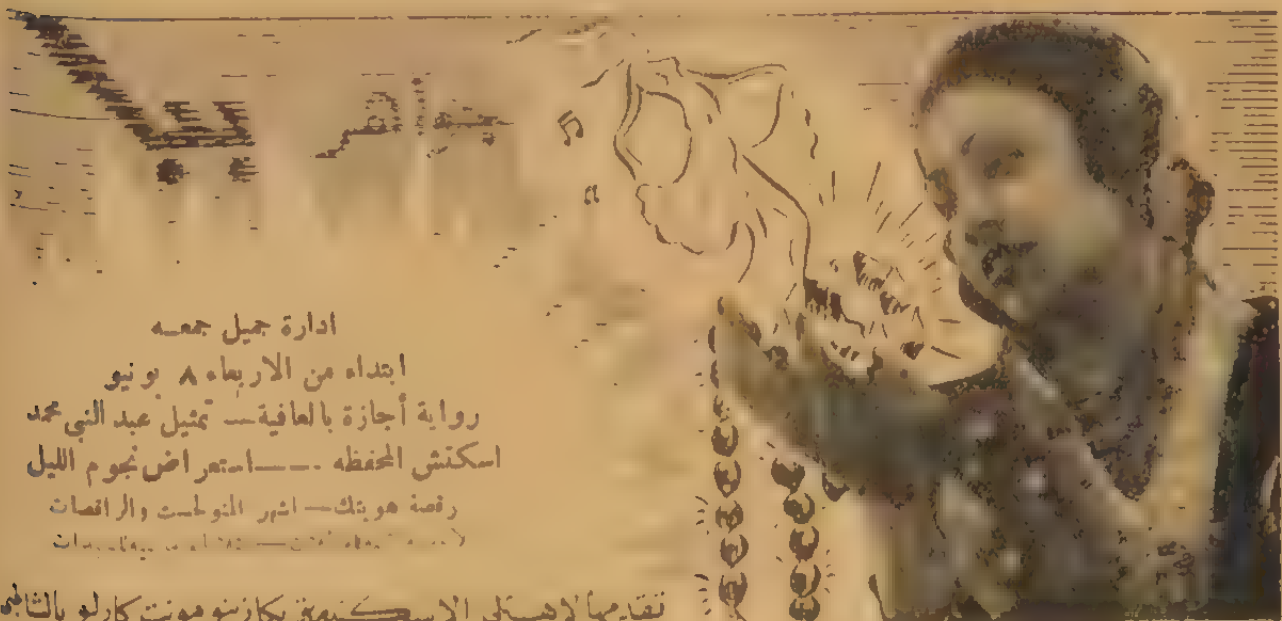 جواهر
ادارة جميل جمعه
ابتداء من الاربعاء ٨ يونيو
رواية أجازة بالعافية — تمثيل عبد النبي محمد
اسكتش المحفظه — استعراض نجوم الليل
رقصة هوبتك — اشهر المنولجست والراقصات
تقدمها لاهالى الاسكندرية بكازينو مونت كارلو بالشاطبى